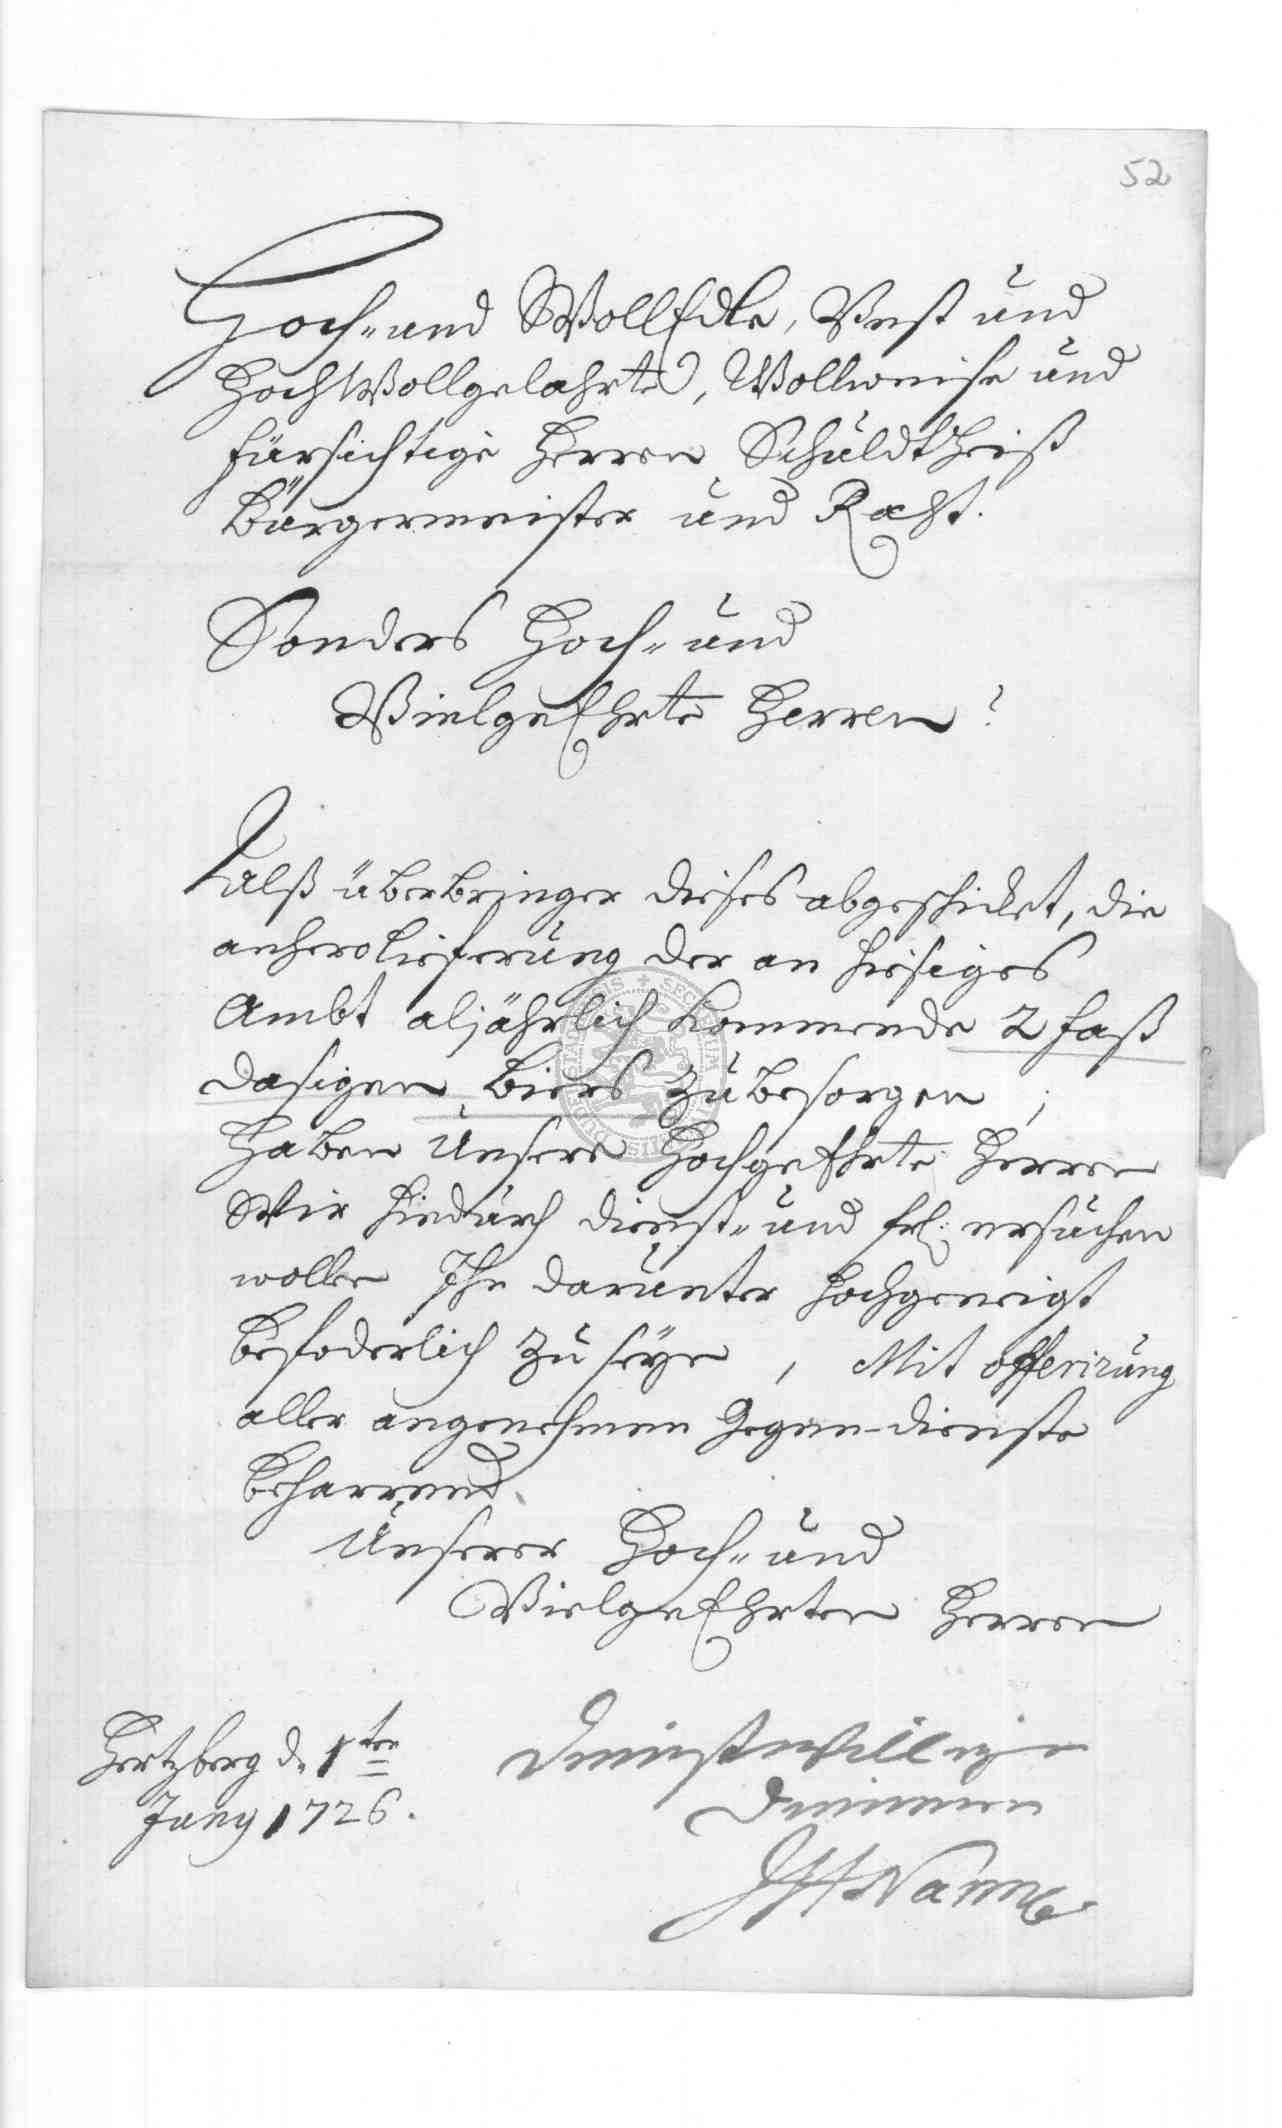 52
Hoch- und WollEdle, Vest und
HochWollgelahrte, Wollweise und
fürsichtige Herren Schuldtheiß
Bürgermeister und Raht.
Sonders Hoch- und
VielgeEhrte Herren
Alß überbringer dieses abgeschicket, die
anherolieferung der an hiesiges
Ambt aljährlich kommende 2 faß
dasigen Biers zu besorgen;
Haben Unsere HochgeEhrte Herren
Wir hiedurch dienst- und frl: ersuchen
wollen Ihr darunter hochgeneigt
befoderlich zu seyn, Mit offerirung
aller angenehmen Gegen-dienste
beharrend.
Unserer Hoch- und
VielgeEhrten Herren
Hertzberg d. 1ten
Juny 1726.
Dienstwillige